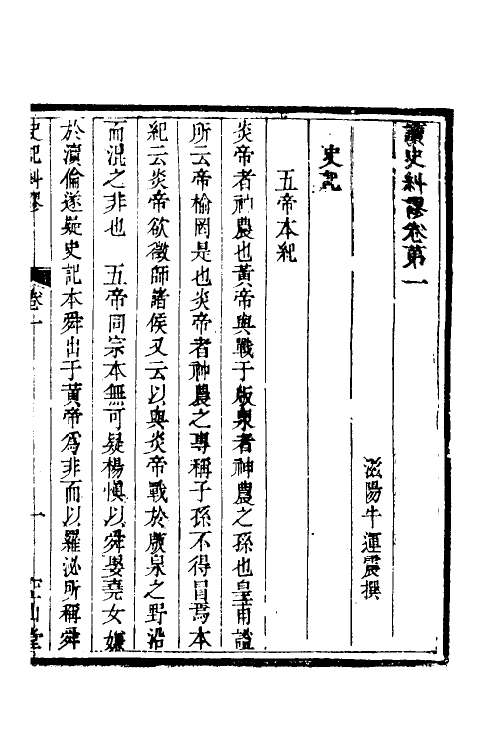 讀史糾謬卷第一
滋陽牛運震撰
史記
五帝本紀
炎帝者神農也黃帝與戰于版泉者神農之孫也皇甫謐
所云帝榆罔是也炎帝者神農之專稱子孫不得冒焉本
紀云炎帝欲徵師諸侯又云以與炎帝戰於版泉之野沿
而混之非也 五帝同宗本無可疑楊愼以舜娶堯女嫌
於瀆倫遂疑史記本舜出于黃帝爲非而以羅泌所稱舜
史記糾謬 卷一 一 空山堂